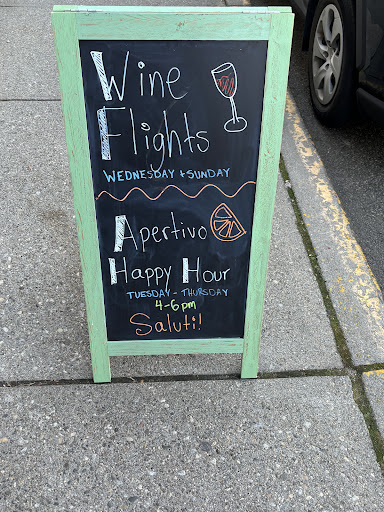 Wine
Flights
WEDNESDAY + SUNDAY
Apertivo
Happy Hour
TUESDAY - THURSDAY
4-6pm
Saluti!